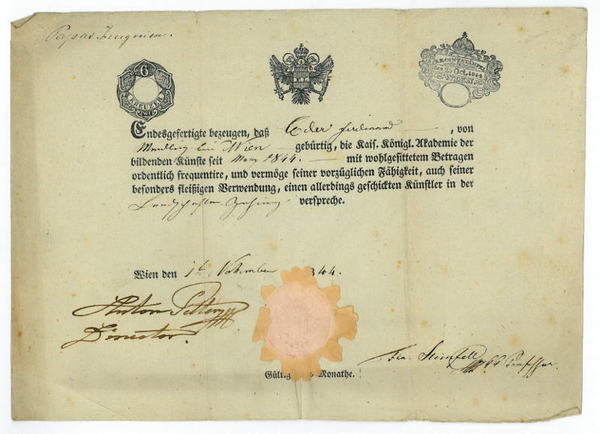 Papas Zeugnisse.
6
KREUZER
Oct. 1844
Endesgefertigte bezeugen, daß Eder Ferdinand, von
bei Wien gebürtig, die Kais. Königl. Akademie der
bildenden Künste seit März 1844. mit wohlgesittetem Betragen
ordentlich frequentire, und vermöge seiner vorzüglichen Fähigkeit, auch seiner
besonders fleißigen Verwendung, einen allerdings geschickten Künstler in der
Landschafts Zeichnung verspreche.
Wien den 844.
Anton Petter
Director.
Fra. Steinfeld
Professor
Gültig Monathe.